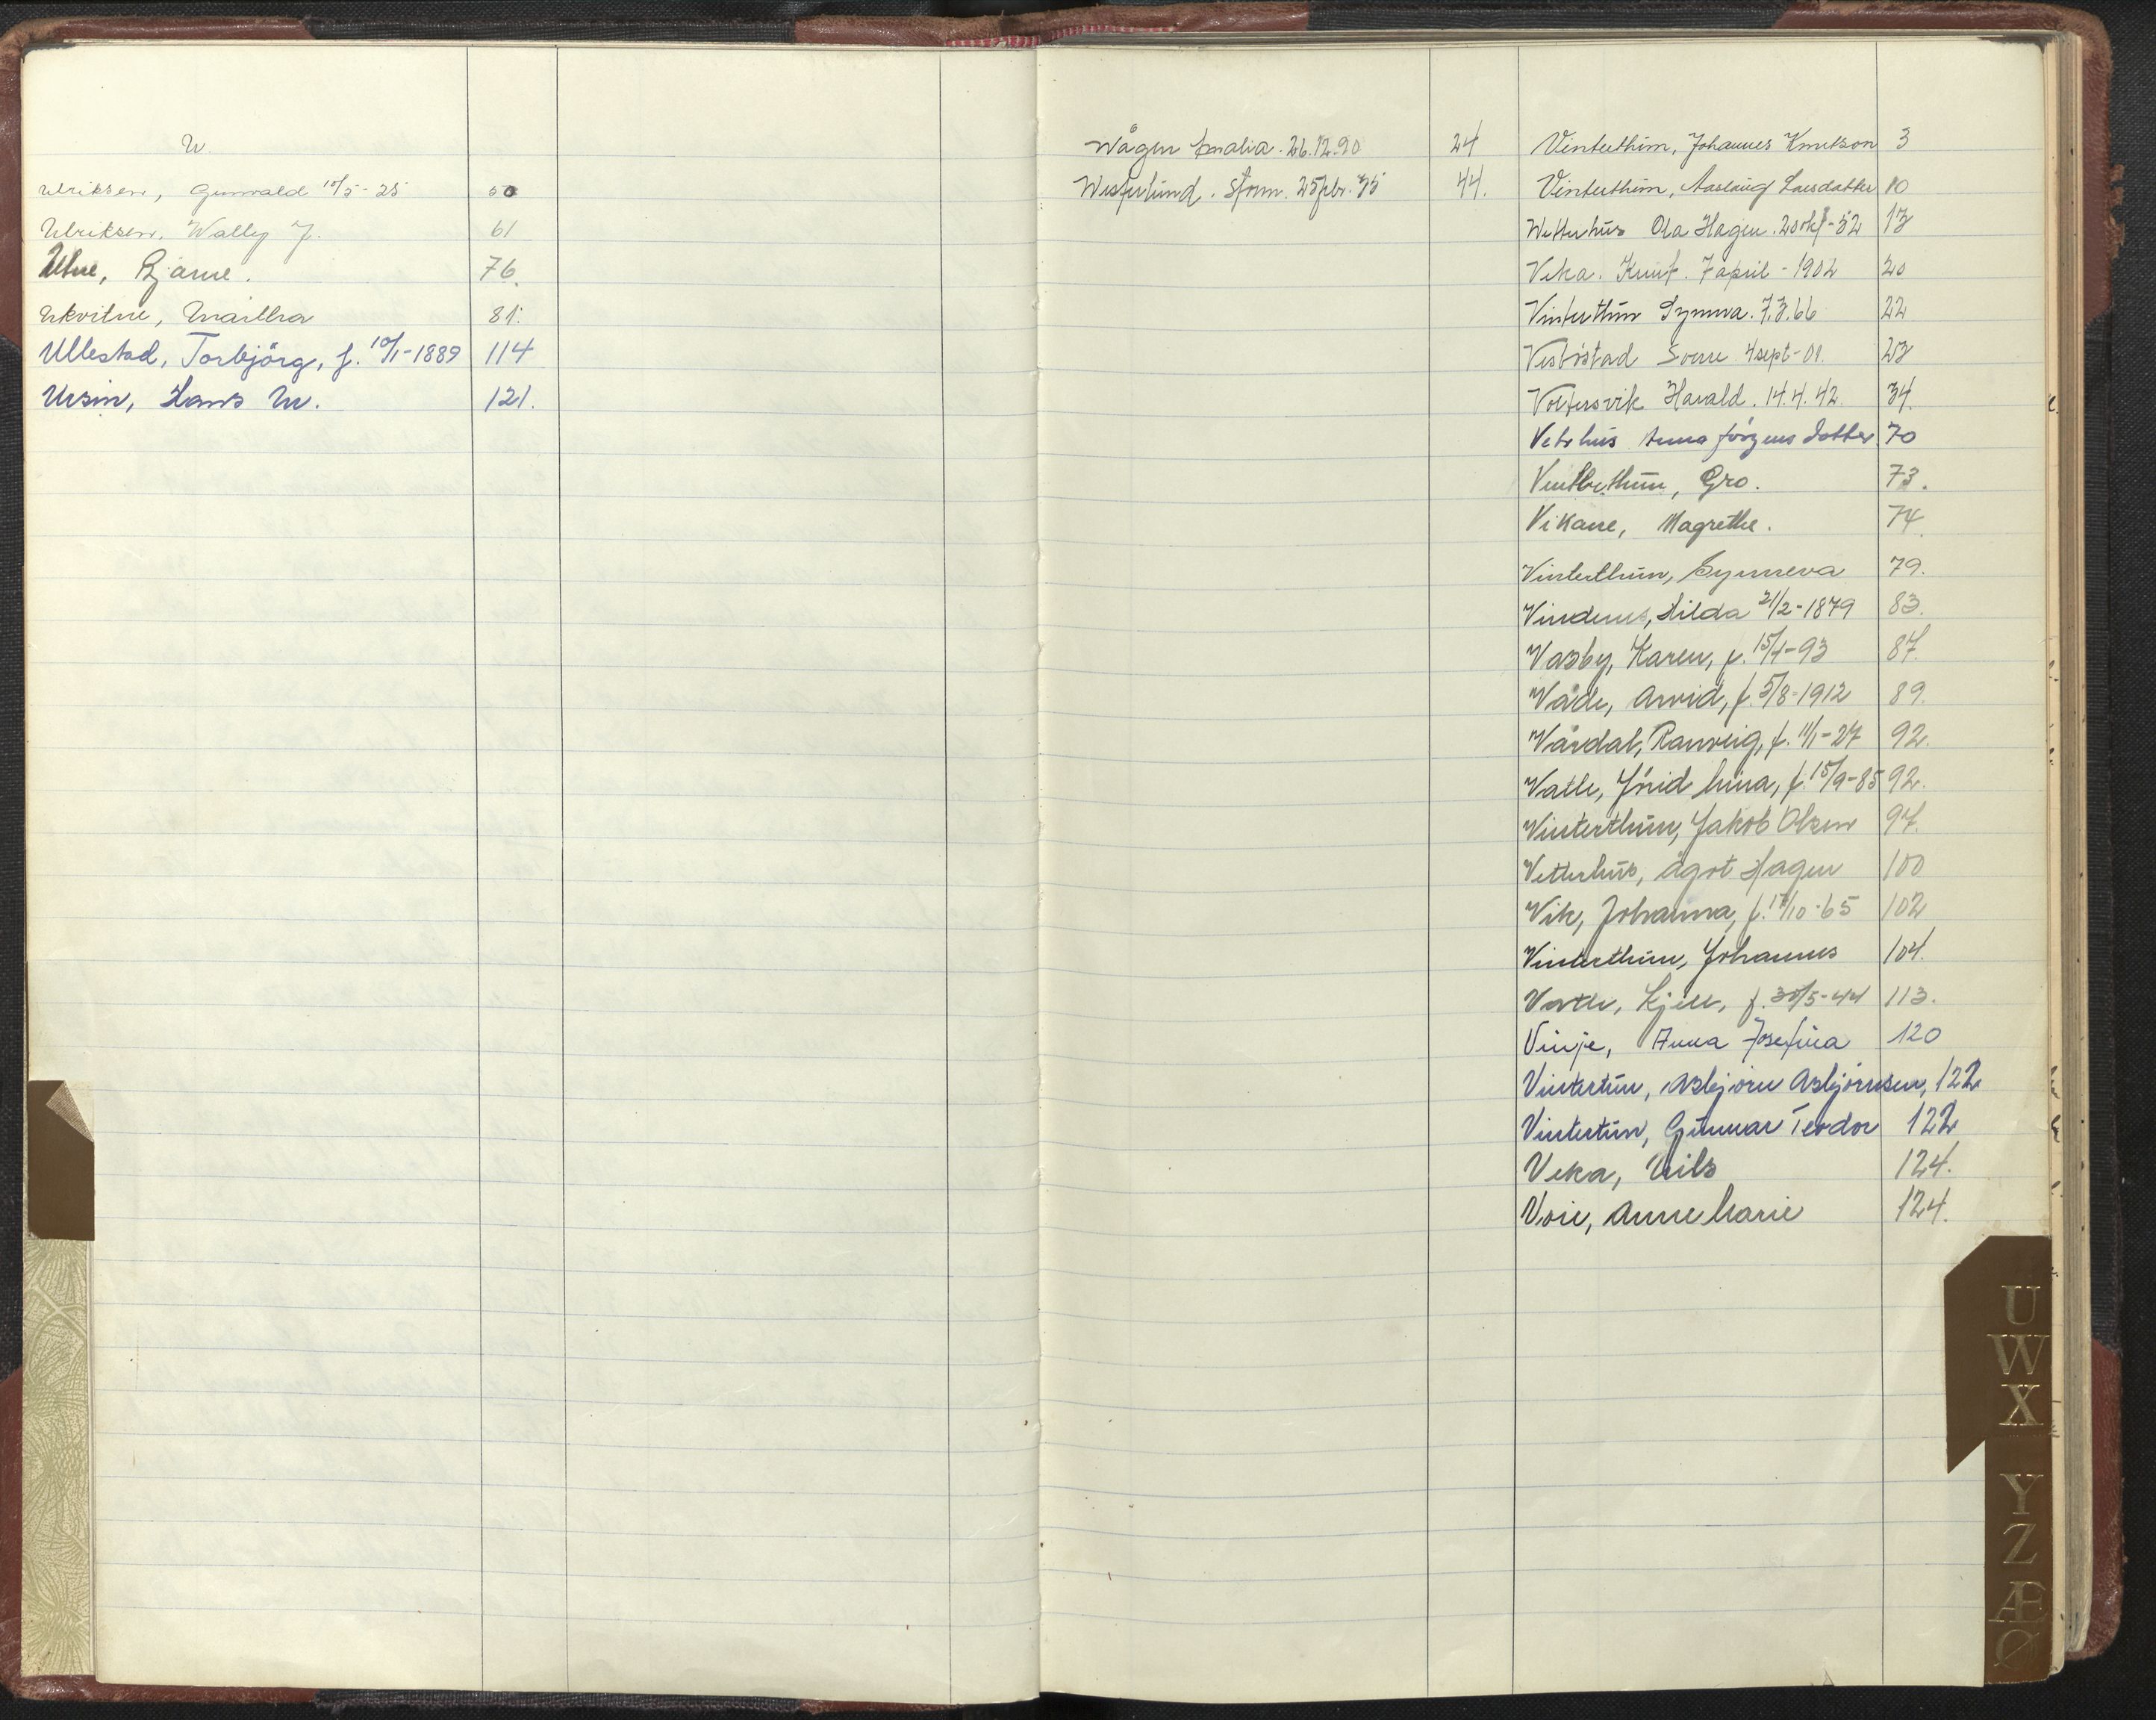 U.
Ulriksen, Gunvald 10/5-25 50
Ulriksen, Wally J. 61
Utne, Bjarne. 76.
Utkvitne, Martha 81.
Ullestad, Torbjörg, f. 10/1-1889 114
Ursin, Hans M. 121.
Wågen Amalia. 26.12.90 24
Westerlund. Storm. 25 febr. 35 44.
Vinterthun, Johannes Knutson 3
Vinterthun, Aaslaug Larsdatter 10
Wetterhus Ola Hagen. 20 okt-52 13
Veka. Knut. 7 april - 1902 20
Vinterthun Synnva. 7.3.66 22
Vestböstad Sverre 4 sept-01. 23
Voltersvik Harald. 14.4.42. 34.
Vetrhus Anna Jörgens dotter 70
Vintherthun, Gro. 73.
Vikane, Magrethe. 74.
Vinterthun, Synneva 79.
Vindenes, Hilda 21/2-1879 83.
Vasby, Karen, f. 15/4-93 87.
Våde, Arvid, f. 5/8-1912 89.
Vårdal, Ranveig, f. 11/1-27 92.
Valle, Jörid Mina, f. 15/9-85 92.
Vinterthun, Jakob Olsen 97.
Vetterhus, Ågot Hagen 100
Vik, Johanna, f. 17/10-65 102
Vinterthun, Johannes 104.
Vatle, Kjell, f. 30/5-44 113.
Vinje, Anna Josefina 120
Vintertun, Asbjörn Asbjörnsen, 122
Vintertun, Gunnar Teodor 122
Veka, Nils 124.
Voie, Anne Marie 124.
U
W
X
Y
Z
Æ
Ø